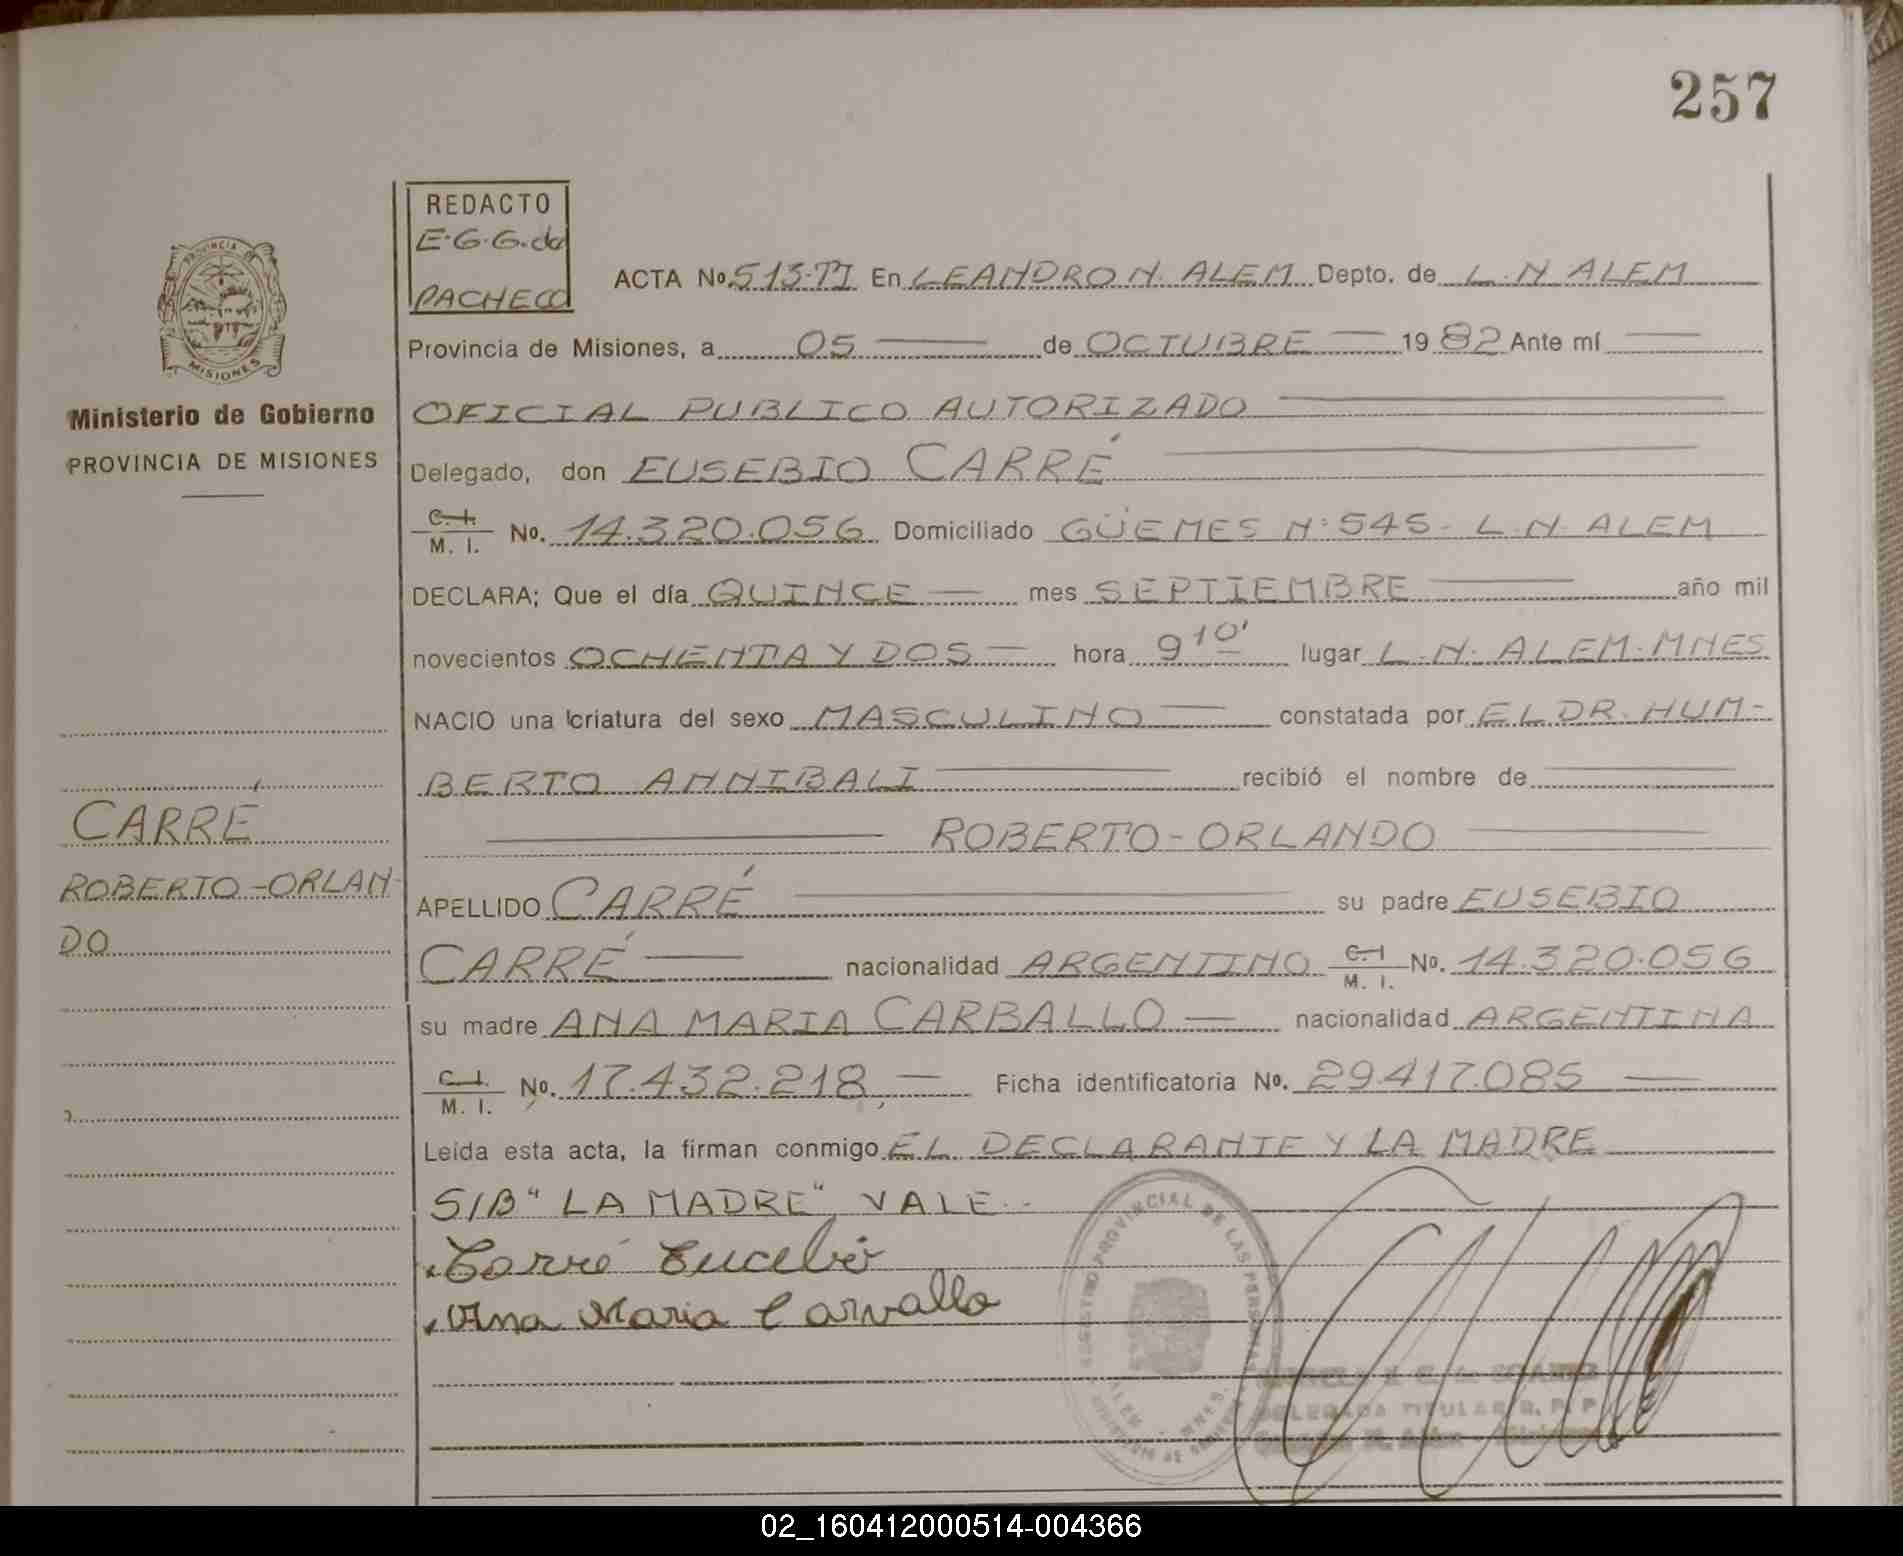 257
REDACTO
E.G.G. de
PACHECO
PROVINCIA DE
MISIONES
Ministerio de Gobierno
PROVINCIA DE MISIONES
CARRÉ
ROBERTO-ORLAN-
DO
ACTA No. 513-TI En LEANDRO N. ALEM Depto. de L.N ALEM
Provincia de Misiones, a 05 de OCTUBRE 1982 Ante mí
OFICIAL PUBLICO AUTORIZADO
Delegado, don EUSEBIO CARRÉ
C. I. M. I. No. 14.320.056 Domiciliado GÜEMES Nº 545- L.N. ALEM
DECLARA; Que el día QUINCE mes SEPTIEMBRE año mil
novecientos OCHENTA Y DOS hora 9 10' lugar L.N. ALEM-MNES
NACIO una criatura del sexo MASCULINO constatada por EL DR. HUM-
BERTO ANNIBALI recibió el nombre de
ROBERTO-ORLANDO
APELLIDO CARRÉ su padre EUSEBIO
CARRÉ nacionalidad ARGENTINO C. I M. I. No. 14.320.056
su madre ANA MARIA CARBALLO nacionalidad ARGENTINA
C. I. M. I. No. 17.432.218 Ficha identificatoria No. 29.417.085
Leída esta acta, la firman conmigo EL DECLARANTE Y LA MADRE
S/B "LA MADRE" VALE.-
Carré Eucebio
Ana Maria Carvallo
REGISTRO PROVINCIAL DE LAS PERSONAS
ALEM - MNES.
DELEGADA TITULAR R. P. P.
02_160412000514-004366